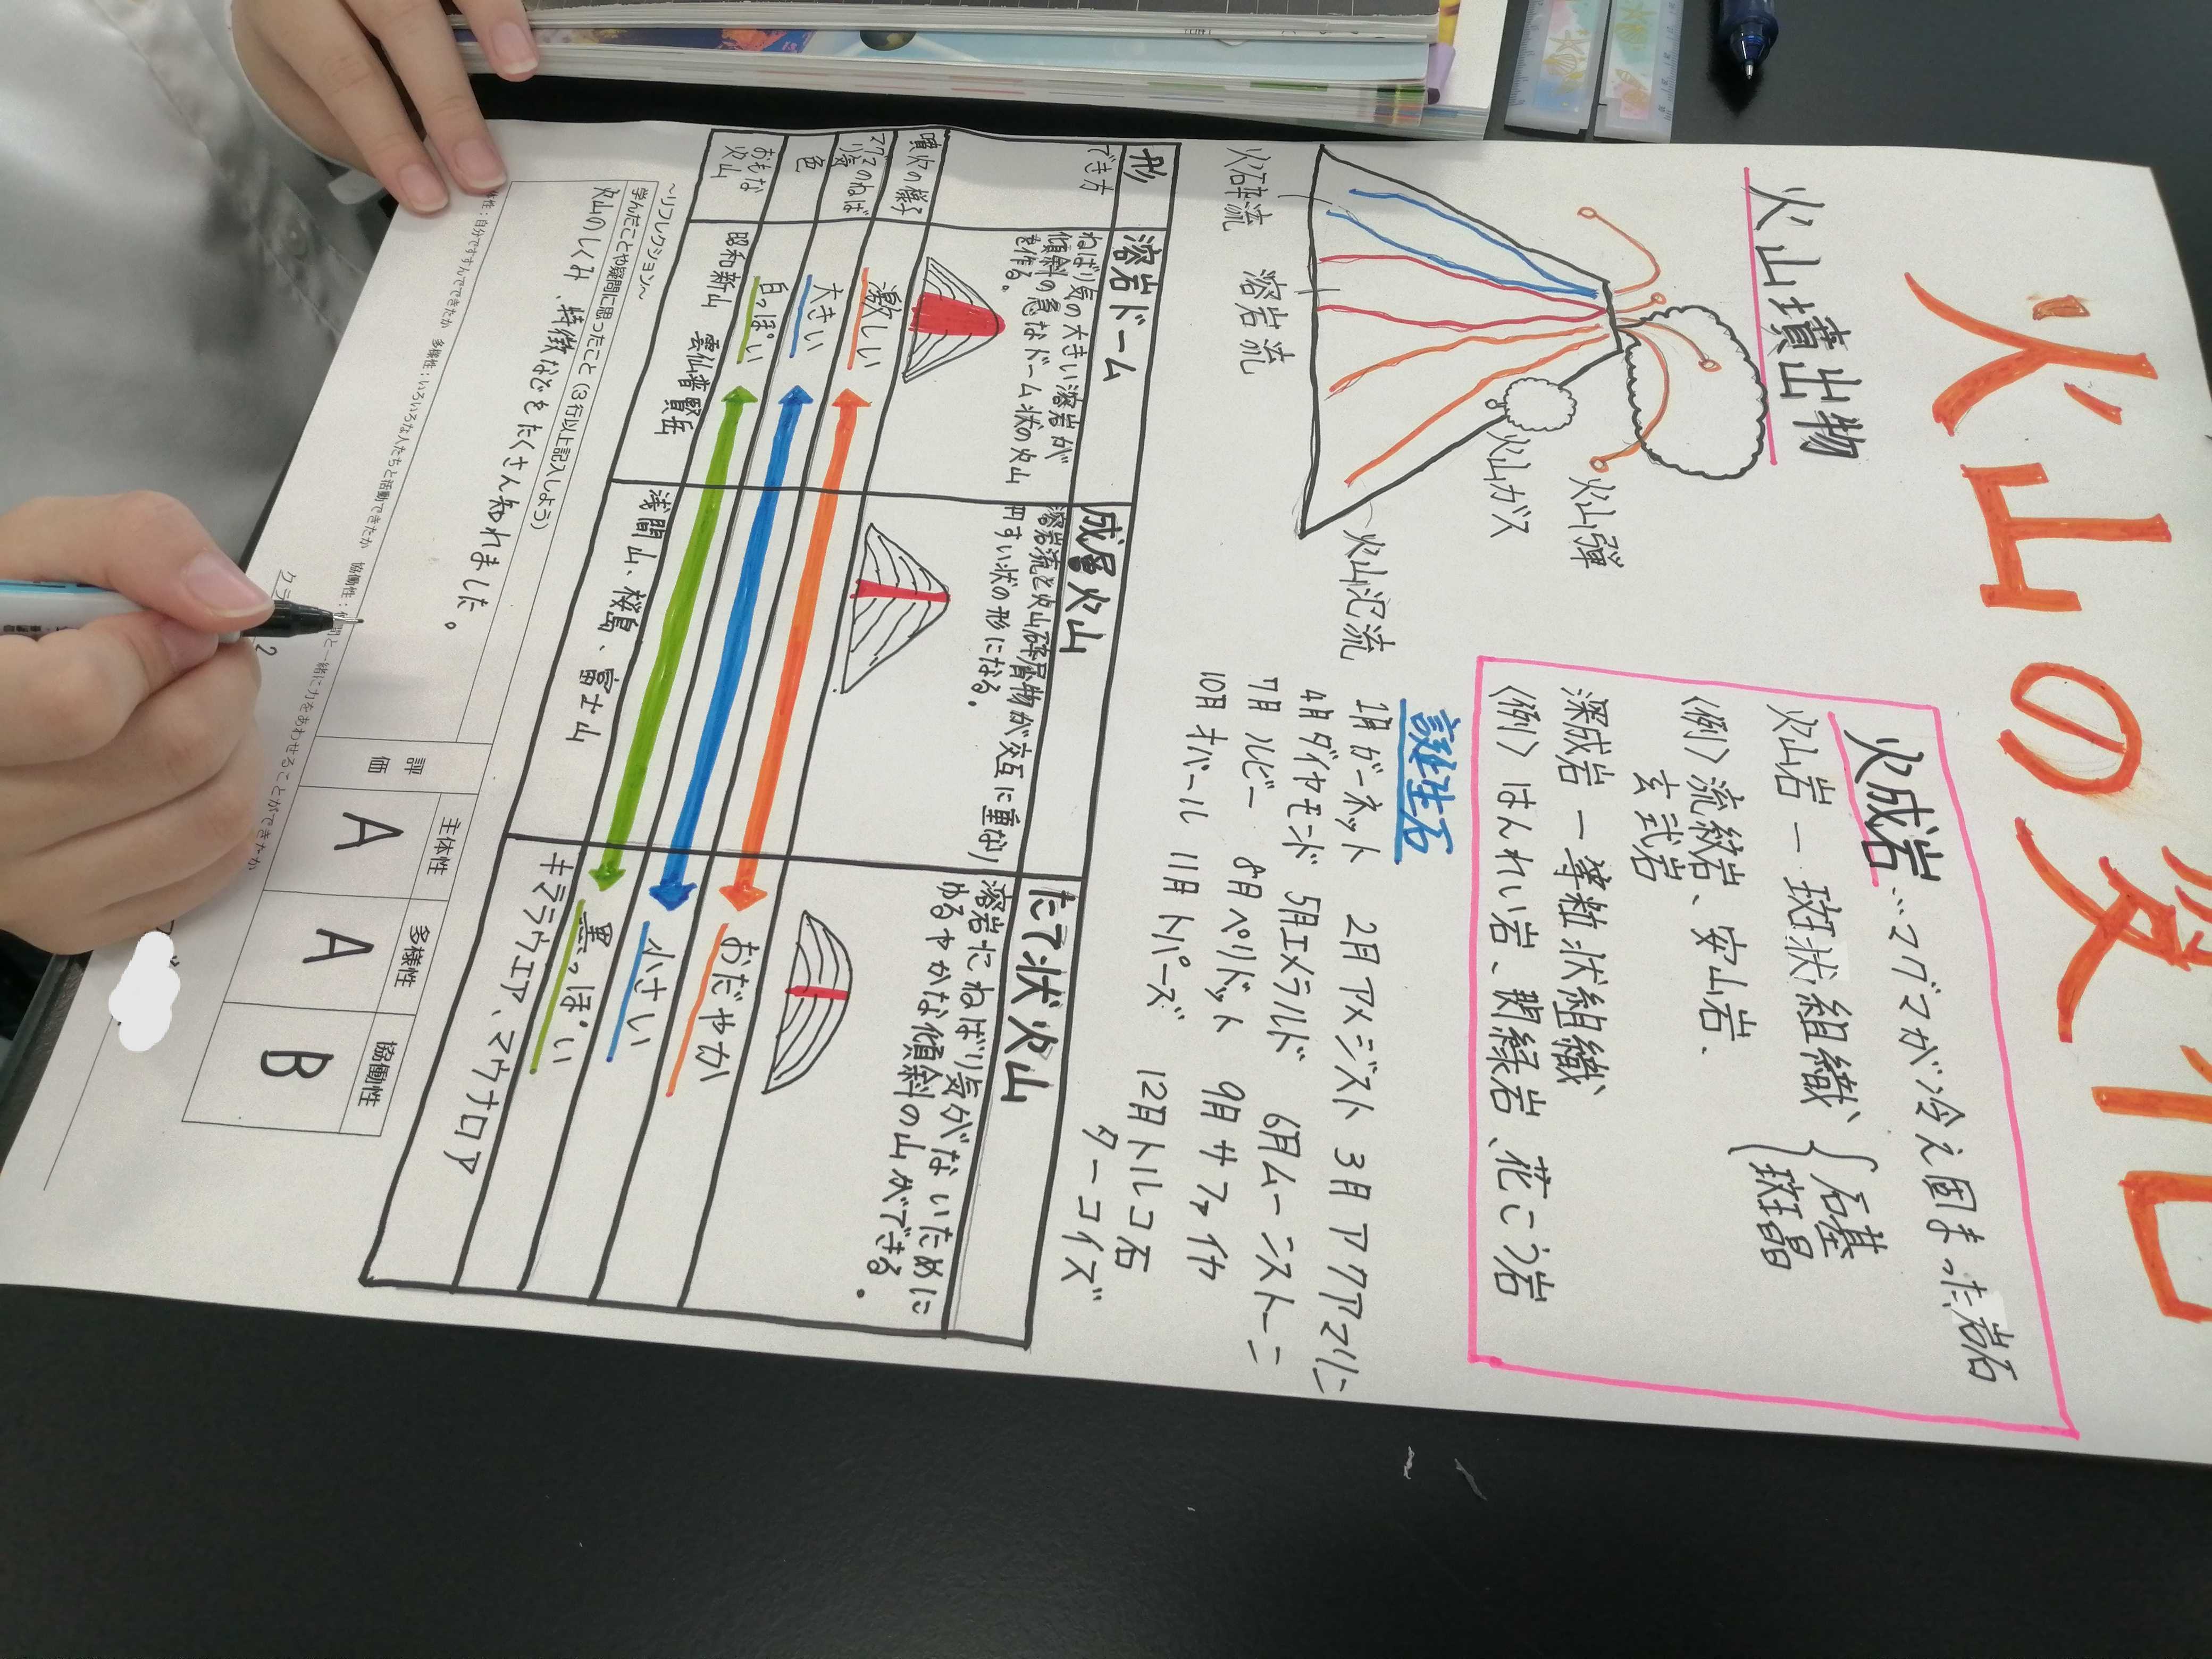 火山の変化
火山墳出物
火山弾
火山ガス
火山泥流
溶岩流
火砕流
火成岩…マグマが冷え固まった岩石
火山岩 ー 斑状組織{石基
斑晶
〈例〉流紋岩、安山岩、
玄武岩
深成岩 ー 等粒状組織
〈例〉はんれい岩、閃緑岩、花こう岩
誕生石
1月ガーネット 2月アメジスト 3月アクアマリン
4月ダイヤモンド 5月エメラルド 6月ムーンストーン
7月ルビー 8月ペリドット 9月サファイヤ
10月オパール 11月トパーズ 12月トルコ石
ターコイズ
形 溶岩ドーム 成層火山 たて状火山
でき方
ねばり気の大きい溶岩が
傾斜の急なドーム状の火山
を作る。
溶岩流と火山砕屑物が交互に重なり
円すい状の形になる。
溶岩にねばり気がないために
ゆるやかな傾斜の山ができる。
噴火の様子 激しい おだやか
マグマのねば
り気 大きい 小さい
色 白っぽい 黒っぽい
おもな
火山 昭和新山 雲仙普賢岳 浅間山、桜島、富士山 キラウエア、マウナロア
～リフレクション～
学んだことや疑問に思ったこと(3行以上記入しよう)
火山のしくみ、特徴などをたくさん知れました。
評価 主体性 多様性 協働性
A A B
性:自分ですすんでできたか 多様性:いろいろな人たちと活動できたか 協働性:仲間と一緒に力をあわせることができたか
2